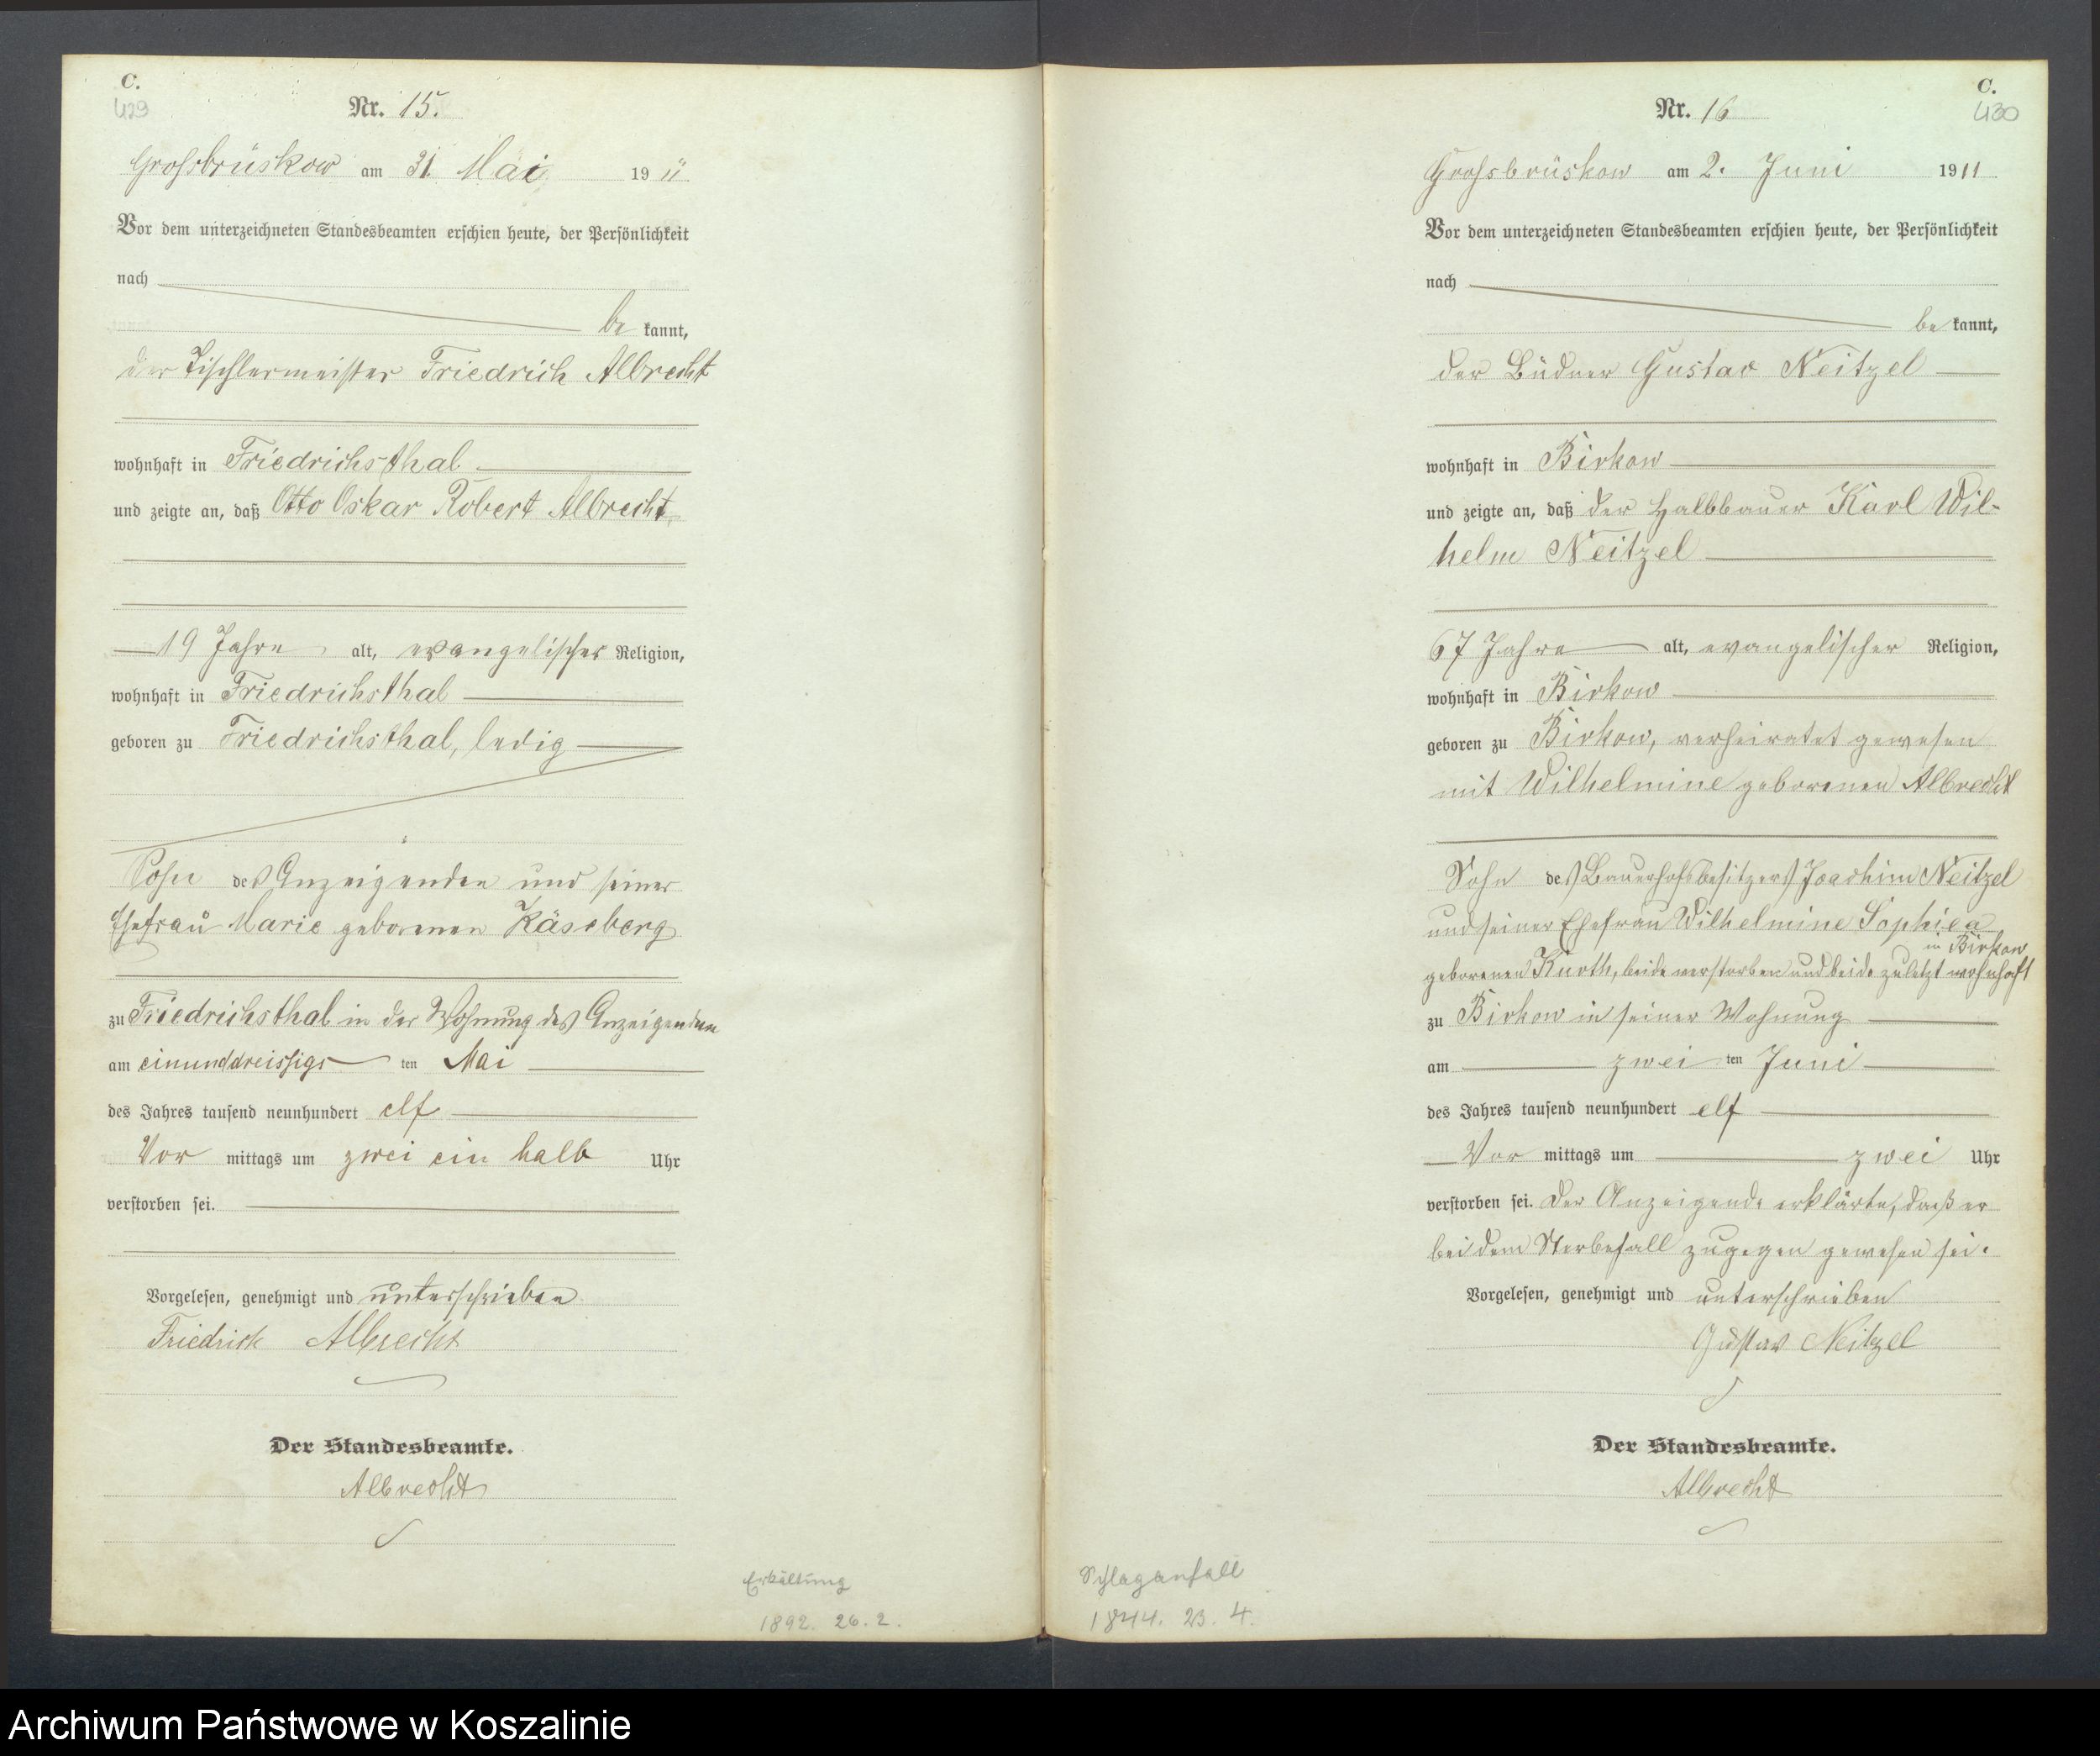 C.
429
Nr. 15.
Grossbrüskow am 31. Mai 19 11
Vor dem unterzeichneten Standesbeamten erschien heute, der Persönlichkeit
nach
be kannt,
der Tischlermeister Friedrich Albrecht
wohnhaft in Friedrichsthal
und zeigte an, daß Otto Oskar Robert Albrecht
19 Jahre alt, evangelischer Religion,
wohnhaft in Friedrichsthal
geboren zu Friedrichsthal, ledig
Sohn des Anzeigenden und seiner
Ehefrau Marie geborenen Käseberg
zu Friedrichsthal in der Wohnung des Anzeigenden
am einunddreissigs ten Mai
des Jahres tausend neunhundert elf
Vor mittags um zwei ein halb Uhr
verstorben sei.
Vorgelesen, genehmigt und unterschrieben
Friedrich Albrecht
Der Standesbeamte.
Albrecht
Erkältung
1892. 26. 2.
C.
430
Nr. 16
Grossbrüskow am 2. Juni 1911
Vor dem unterzeichneten Standesbeamten erschien heute, der Persönlichkeit
nach
be kannt,
der Büdner Gustav Neitzel
wohnhaft in Birkow
und zeigte an, daß der Halbbauer Karl Wil-
helm Neitzel
67 Jahre alt, evangelischer Religion,
wohnhaft in Birkow
geboren zu Birkow, verheiratet gewesen
mit Wilhelmine geborenen Albrecht
Sohn des Bauerhofsbesitzers Joachim Neitzel
und seiner Ehefrau Wilhelmine Sophie
in Birkow
geborenen Knoth, beide verstorben und beide zuletzt wohnhaft
zu Birkow in seiner Wohnung
am zwei ten Juni
des Jahres tausend neunhundert elf
Vor mittags um zwei Uhr
verstorben sei. Der Anzeigende erklärte, daß er
bei dem Sterbefall zugegen gewesen sei.
Vorgelesen, genehmigt und unterschrieben
Gustav Neitzel
Der Standesbeamte.
Albrecht
Schlaganfall
1844. 23. 4.
Archiwum Państwowe w Koszalinie